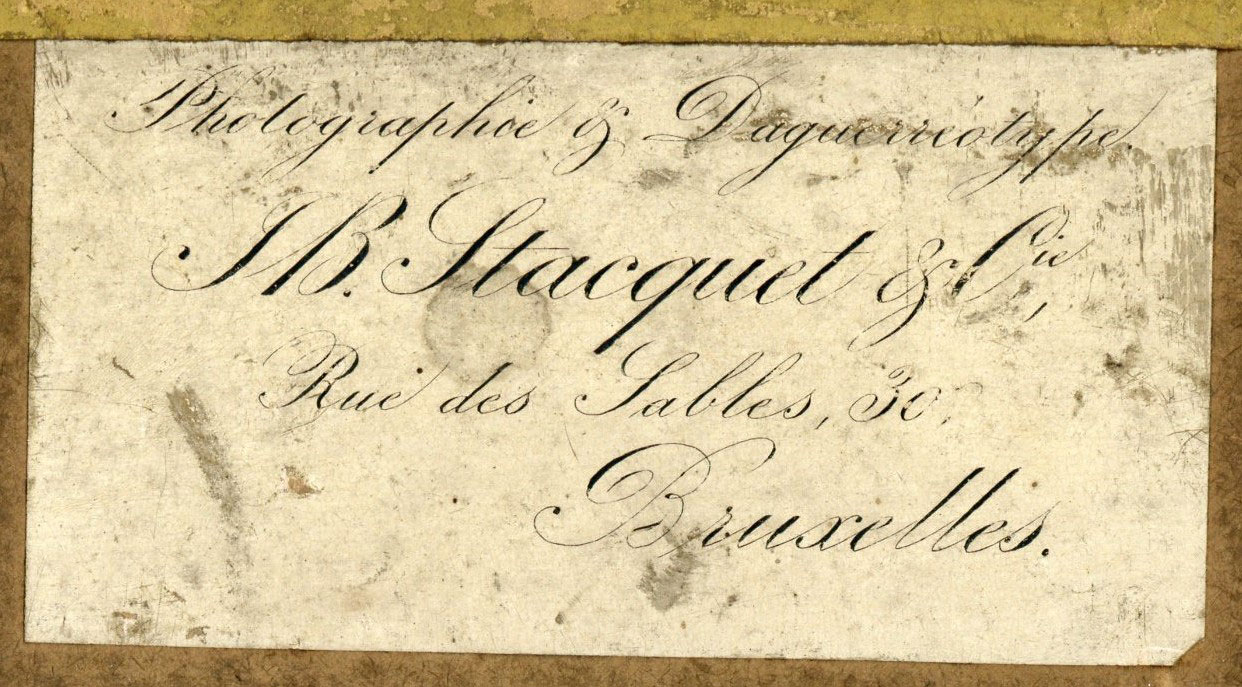 Photographie & Daguerréotype.
JB. Stacquet & Cie,
Rue des Sables, 30,
Bruxelles.